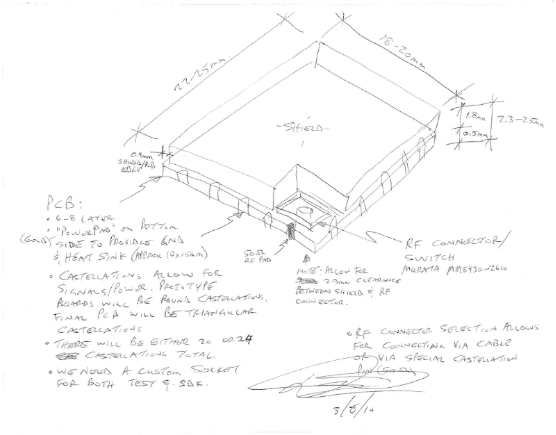 22-25mm
18-20mm
1.8mm
2.3-2.5mm
0.5mm
SHIELD
0.4mm
EDGE
PCB:
• 6-8 LAYER
• "POWERPAD" ON BOTTOM
(GOLD) SIDE TO PROVIDE GND
& HEAT SINK (APPROX 10x15mm)
• CASTELLATIONS ALLOW FOR
SIGNALS/POWER. PROTOTYPE
BOARDS WILL BE ROUND CASTELLATIONS.
FINAL PCB WILL BE TRIANGULAR
CASTELLATIONS
• THERE WILL BE EITHER 20 OR 24
CASTELLATIONS TOTAL.
• WE NEED A CUSTOM SOCKET
FOR BOTH TEST & SDK.
RF PAD
NOTE: ALLOW FOR
CLEARANCE
BETWEEN SHIELD & RF
CONNECTOR.
RF CONNECTOR/
SWITCH
MURATA MM8430-2610
• RF CONNECTOR SELECTION ALLOWS
FOR CONNECTING VIA CABLE
OR VIA SPECIAL CASTELLATION